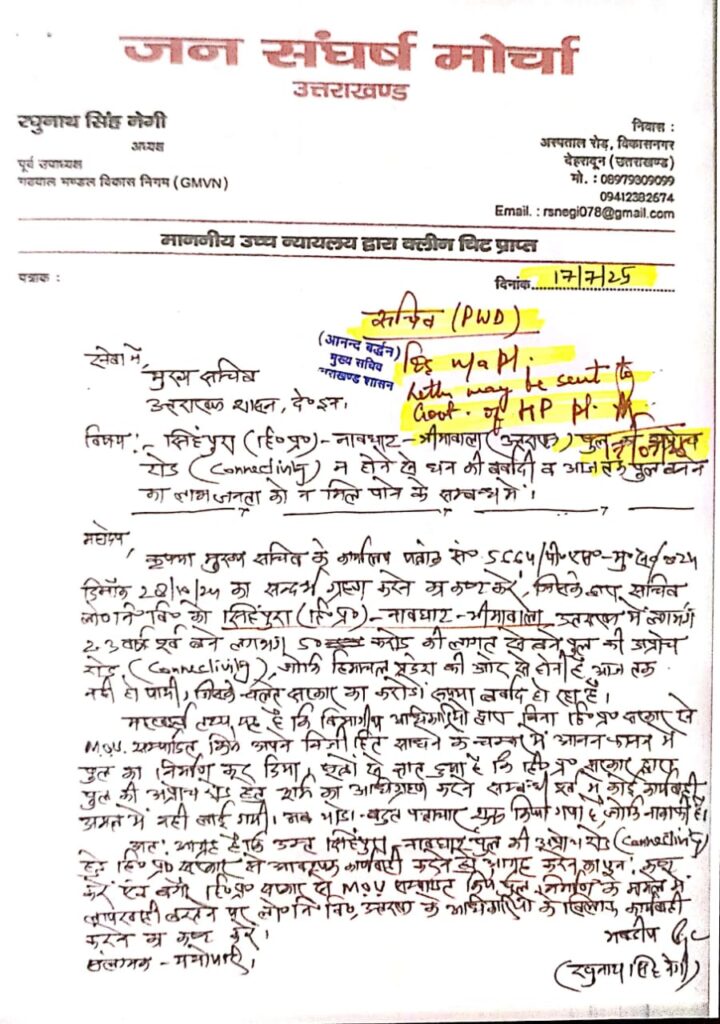 जन संघर्ष मोर्चा
उत्तराखण्ड
रघुनाथ सिंह नेगी
अध्यक्ष
पूर्व उपाध्यक्ष
गढवाल मण्डल विकास निगम (GMVN)
निवास :
अस्पताल रोड़, विकासनगर
देहरादून (उत्तराखण्ड)
मो. : 08979309099
09412382674
Email. : rsnegi078@gmail.com
माननीय उच्च न्यायलय द्वारा क्लीन चिट प्राप्त
पत्रांक :
दिनांक 17/7/25
सचिव (PWD)
(आनन्द बर्द्धन)
मुख्य सचिव
उत्तराखण्ड शासन
n/a pl.
Letter may be sent to
Govt. of HP pl.
सेवा में,
मुख्य सचिव
उत्तराखण्ड शासन, दे०दून।
विषय :- सिंहपुरा (हि०प्र०) - नावघाट - भीमावाला (उत्तराखण्ड) पुल की अप्रोच
रोड (Connecting) न होने से धन की बर्बादी व आज तक पुल बनने
का लाभ जनता को न मिल पाने के सम्बन्ध में।
महोदय,
कृपया मुख्य सचिव के कार्यालय पत्रांक सं०
दिनाँक 28/10/24 का सन्दर्भ ग्रहण करने का कष्ट करें, जिसके द्वारा सचिव
लो०नि०वि० को सिंहपुरा (हि०प्र०) - नावघाट - भीमावाला उत्तराखण्ड में लगभग
2-3 वर्ष पूर्व बने लगभग 50 करोड़ की लागत से बने पुल की अप्रोच
रोड (Connectivity), जोकि हिमाचल प्रदेश की ओर से होनी है, आज तक
नही हो पायी, जिसके चलते सरकार का करोडों रूपया बर्बाद हो रहा है।
तथ्य यह है कि विभागीय अधिकारियों द्वारा बिना हि०प्र० सरकार से
M.O.U. सम्पादित किये अपने निजी हित साधने के चक्कर में आनन फानन में
पुल का निर्माण कर दिया। ज्ञात हुआ है कि हि०प्र० सरकार द्वारा
पुल की अप्रोच रोड हेतु भूमि का अधिग्रहण करने सम्बन्धी कोई कार्यवाही
अमल में नही लाई गयी। अब थोड़ा-बहुत पत्राचार शुरू किया गया है, जोकि नाकाफी है।
अतः आग्रह है कि उक्त सिंहपुरा - नावघाट पुल की अप्रोच रोड (Connecting)
हेतु हि०प्र० सरकार से आवश्यक कार्यवाही करने का आग्रह करने का पुनः कष्ट
करें एवं बगैर हि०प्र० सरकार से M.O.U सम्पादित किये पुल निर्माण के मामले में
लापरवाही बरतने पर लो०नि०वि०, उत्तराखण्ड के अधिकारियों के खिलाफ कार्यवाही
करने का कष्ट करें।
संलग्नक - यथोपरि।
भवदीय
(रघुनाथ सिंह नेगी)